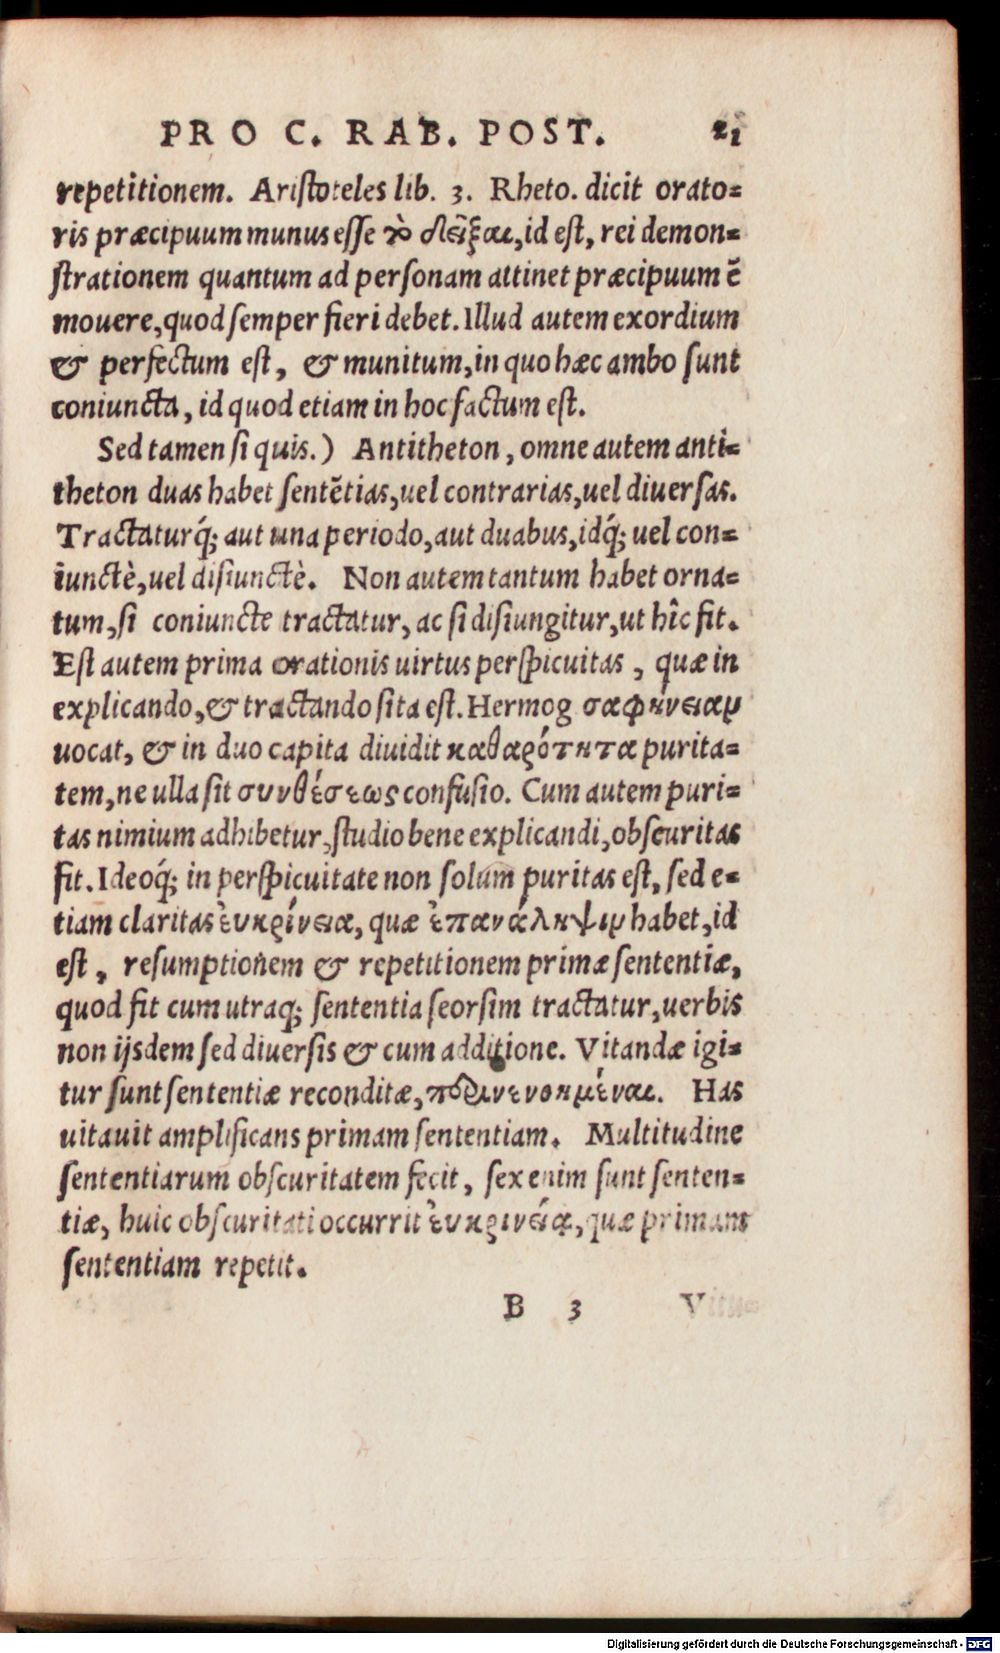 PRO C. RAB. POST. 21
repetitionem. Aristoteles lib. 3. Rheto. dicit orato=
ris præcipuum munus esse τὸ δεῖξαι, id est, rei demon=
strationem quantum ad personam attinet præcipuum ē
mouere, quod semper fieri debet. Illud autem exordium
& perfectum est, & munitum, in quo hæc ambo sunt
coniuncta, id quod etiam in hoc factum est.
Sed tamen si quis.) Antitheton, omne autem anti=
theton duas habet sentētias, uel contrarias, uel diuersas.
Tractaturq́; aut una periodo, aut duabus, idq́; uel con=
iunctè, uel disiunctè. Non autem tantum habet orna=
tum, si coniuncte tractatur, ac si disiungitur, ut hîc fit.
Est autem prima orationis uirtus perspicuitas, quæ in
explicando, & tractando sita est. Hermog σαφήνειαν
uocat, & in duo capita diuidit καθαρότητα purita=
tem, ne ulla sit συνθέσεως confusio. Cum autem puri=
tas nimium adhibetur, studio bene explicandi, obscuritas
fit. Ideoq́; in perspicuitate non solùm puritas est, sed e=
tiam claritas ἐυκρίνεια, quæ ἐπανάληψιν habet, id
est, resumptionem & repetitionem primæ sententiæ,
quod fit cum utraq; sententia seorsim tractatur, uerbis
non ijsdem sed diuersis & cum additione. Vitandæ igi=
tur sunt sententiæ reconditæ, περινενοημέναι. Has
uitauit amplificans primam sententiam. Multitudine
sententiarum obscuritatem fecit, sex enim sunt senten=
tiæ, huic obscuritati occurrit ἐυκρινεία, quæ primam
sententiam repetit.
B 3 Vitu=
Digitalisierung gefördert durch die Deutsche Forschungsgemeinschaft - DFG